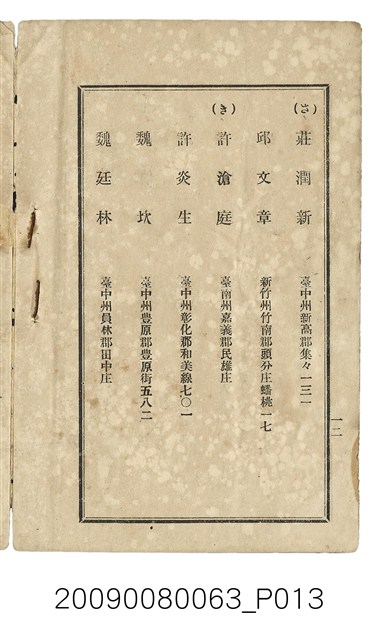 (さ) 莊潤新 臺中州新高郡集々一三一
邱文章 新竹州竹南郡頭分庄蟠桃一七
(き) 許滄庭 臺南州嘉義郡民雄庄
許炎生 臺中州彰化郡和美線七〇一
魏坎 臺中州豐原郡豐原街五八二
魏廷林 臺中州員林郡田中庄
一二
20090080063_P013